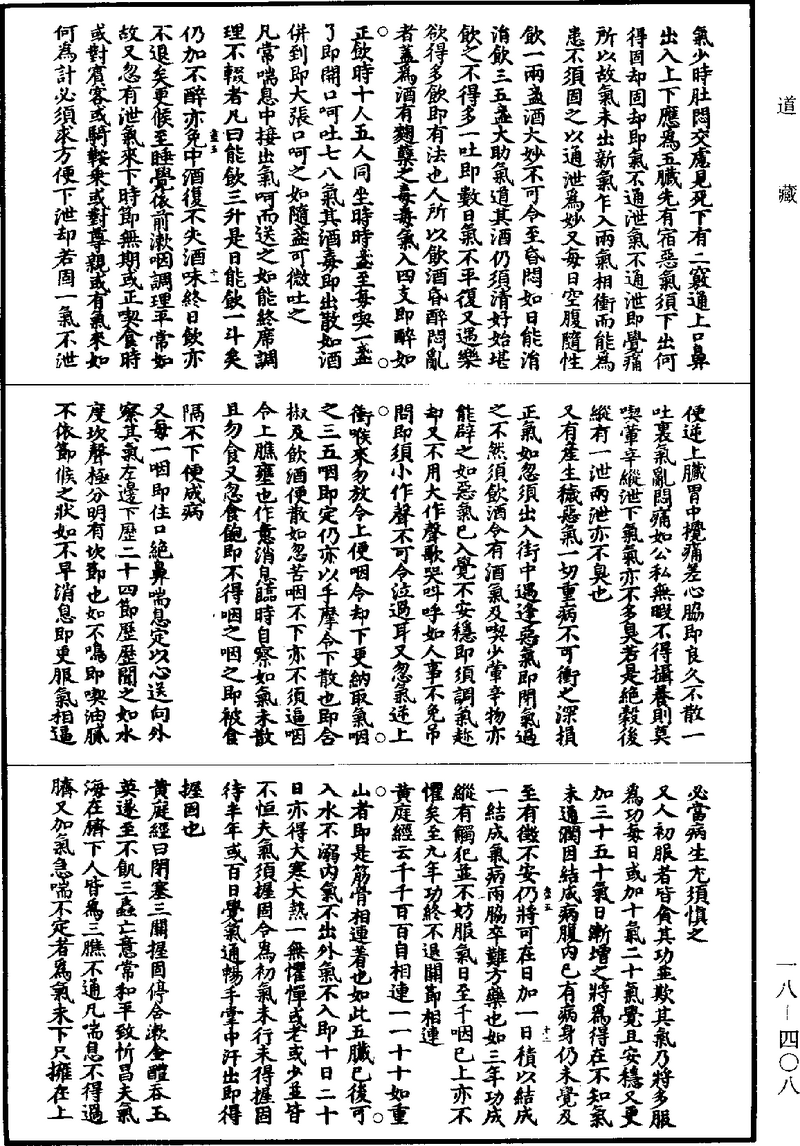 道藏
氣少時肚悶交慮見死下有二竅通上口鼻
出入上下應為五臟先有宿惡氣須下出何
得固却固却即氣不通泄氣不通泄即覺痛
所以故氣未出新氣乍入兩氣相衝而能為
患不須固之以通泄為妙又每日空腹隨性
飲一兩盞酒大妙不可令至昏悶如日能消
消飲三五盞大助氣道其酒仍須清好始堪
飲之不得多一吐即數日氣不平復又遇樂
欲得多飲即有法也人所以飲酒昏醉悶亂
者蓋為酒有麴糵之毒毒氣入四支即醉如
正飲時十人五人同坐時時盞至每喫一盞
了即開口呵吐七八氣其酒毒即出散如酒
併到即大張口呵之如隨盞可微吐之
凡常喘息中接出氣呵而送之如能終席調
理不輟者凡日能飲三升是日能飲一斗矣
仍加不醉亦免中酒復不失酒味終日飲亦
不退矣更候至睡覺依前漱咽調理平常如
故又忽有泄氣來下時節無期或正喫食時
或對賓客或騎鞍乘或對尊親或有氣來如
何為計必須求方便下泄却若固一氣不泄
便逆上臟胃中攪痛差心脇即良久不散一
吐裏氣亂悶痛如公私無暇不得攝養則莫
喫葷辛縱泄下氣氣亦不多臭若是絕穀後
縱有一泄兩泄亦不臭也
又有產生穢惡氣一切重病不可衝之深損
正氣如忽須出入街中遇逢惡氣即閉氣過
之不然須飲酒令有酒氣及喫少葷辛物亦
能辟之如惡氣已入覺不安穩即須調氣趂
却又不用大作聲歌哭叫呼如人事不免吊
問即須小作聲不可令泣過耳又忽氣逆上
衝喉來勿放令上便咽令却下更納取氣咽
之三五咽即定仍亦以手摩令下散也即含
椒及飲酒便散如忽苦咽不下亦不須逼咽
令上膲壅也作意消息臨時自察如氣未散
且勿食又忽食飽即不得咽之咽之即被食
隔不下便成病
又每一咽即住口絕鼻喘息定以心送向外
察其氣左邊下歷二十四節歷歷聞之如水
度坎聲極分明有坎節也如不鳴即喫油膩
不依節候之狀如不早消息即更服氣相逼
必當病生尤須慎之
又人初服者皆貪其功並欺其氣乃將多服
為功每日或加十氣二十氣覺且安穩又更
加三十五十氣日漸增之將為得在不知氣
未通潤因結成病腹內已有病身仍未覺及
至有徵不安仍將可在日加一日積以結成
一結成氣病兩脇卒難方藥也如三年功成
縱有觸犯並不妨服氣日至千咽已上亦不
懼矣至九年功終不退關節相連
黃庭經云千千百百自相連一一十十如重
山者即是筋骨相連著也如此五臟已後可
入水不溺內氣不出外氣不入即十日二十
日亦得大寒大熱一無懼憚或老或少並皆
不恒夫氣須握固令為初氣未行未得握固
待半年或百日覺氣通暢手掌中汗出即得
握固也
黃庭經曰閉塞三關握固停含漱金醴吞玉
英遂至不飢三蟲亡意常和平致忻昌夫氣
海在臍下人皆為三膲不通凡喘息不得過
臍又加氣急喘不定者為氣未下只擁在上
一八－四〇八